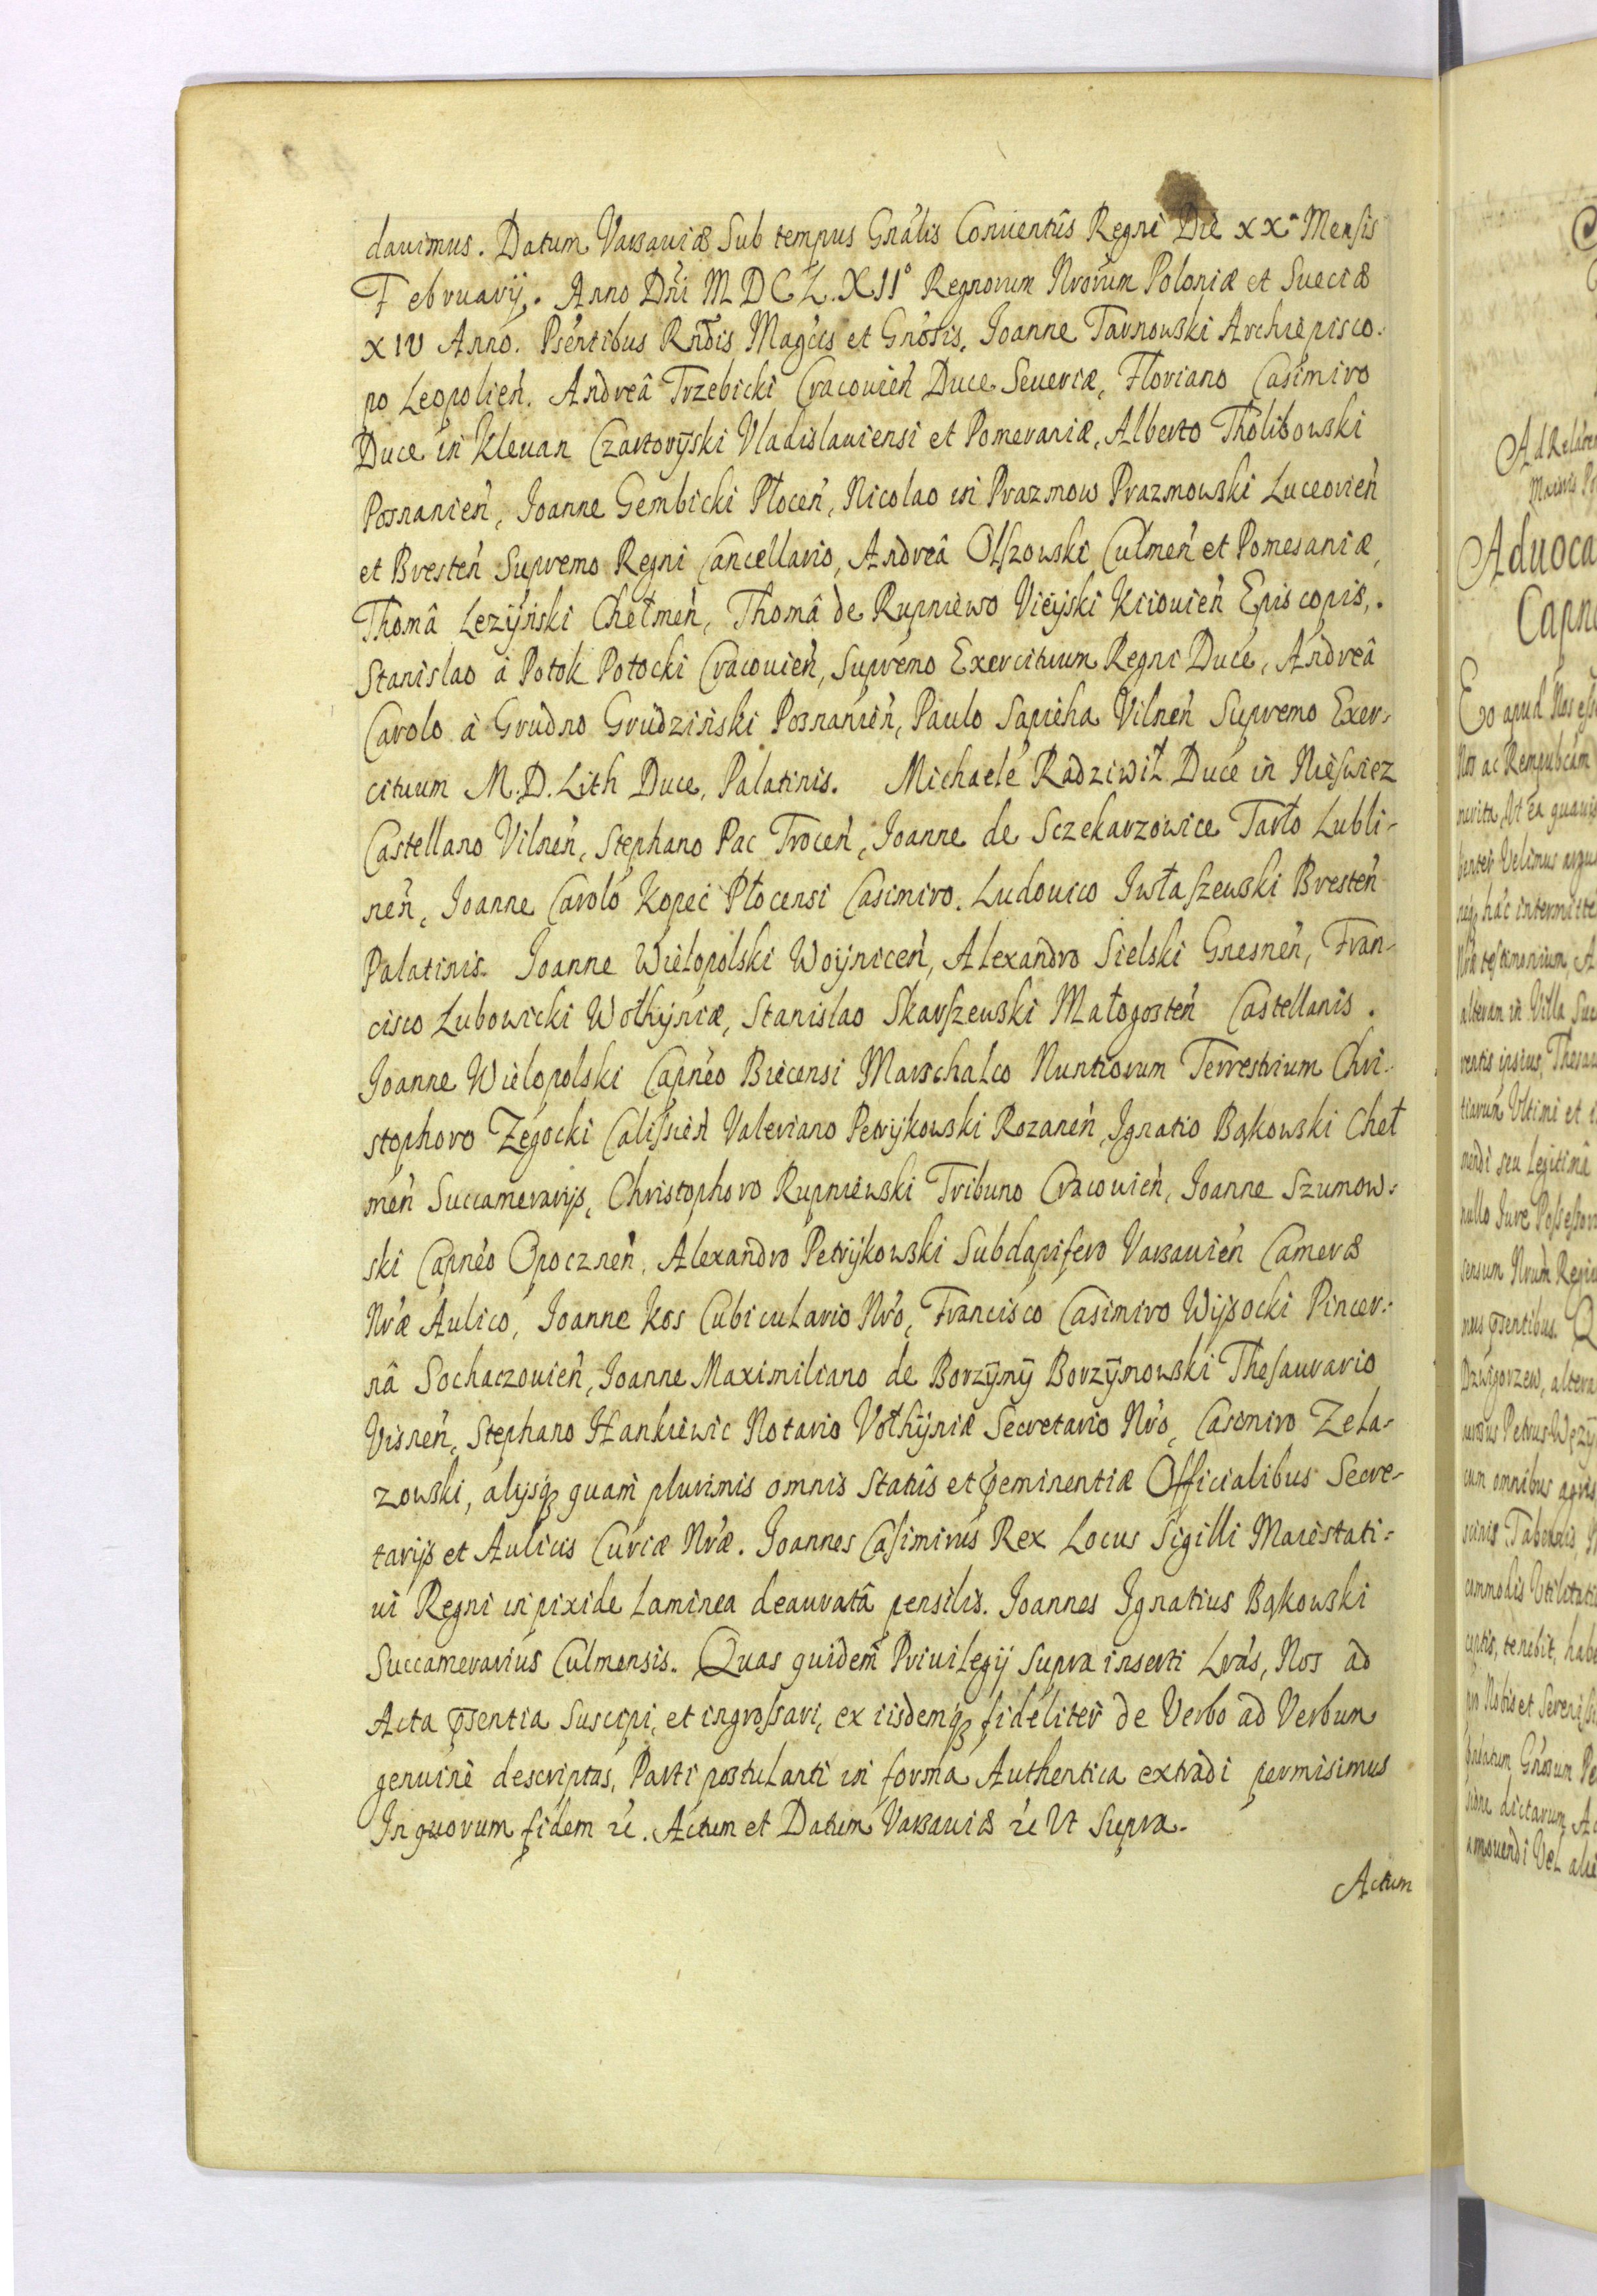 dauimus. Datum Varsauiæ Sub tempus Gnális Conuentûs Regni Die XXa Mensis
Februarij. Anno Dni MDCLXII° Regnorum Nrorum Poloniæ et Sueciæ
XIV Anno. Psentibus Rndis Magcis et Gnosis, Joanne Tarnowski Archiepisco-
po Leopolień. Andreâ Trzebicki Cracouień Duce Seueriæ, Floriano Casimiro
Duce in Kleuan Czartoryjski Vladislauiensi et Pomeraniæ, Alberto Tholibowski
Posnanień, Joanne Gembicki Płoceń, Nicolao in Prazmow Prazmowski Luceorień
et Bresteń Supremo Regni Cancellario, Andreâ Olszowski Culmeń et Pomesaniæ,
Thomâ Lezijński Chełmeń, Thomâ de Rupniewo Vieijski Kiiouień Episcopis,.
Stanislao à Potok Potocki Cracouień, Supremo Exercituum Regni Duce, Andreâ
Carolo à Grudno Grudziński Posnanień, Paulo Sapieha Vilneń Supremo Exer-
cituum M.D. Lith Duce, Palatinis. Michaele Radziwił Duce in Nieswiez
Castellano Vilneń, Stephano Pac Troceń, Joanne de Sczekarzowice Tarło Lubli-
neń, Joanne Carolo Kopeć Płocensi Casimiro. Ludouico Jwłaszewski Bresteń
Palatinis. Joanne Wielopolski Woijniceń, Alexandro Sielski Gnesneń, Fran-
cisco Lubowicki Wołhijniæ, Stanislao Skarszewski Małogosteń Castellanis.
Joanne Wielopolski Capneo Biecensi Marschalco Nuntiorum Terrestrium Chri-
stophoro Zegocki Calissień Valeriano Petrijkowski Rozaneń, Jgnatio Bąkowski Cheł
meń Succamerarijs, Christophoro Rupniewski Tribuno Cracouień, Joanne Szumow-
ski Capneo Opoczneń, Alexandro Petrijkowski Subdapifero Varsauień Cameræ
Nræ Aulico, Joanne Kos Cubiculario Nro, Francisco Casimiro Wijsocki Pincer-
nâ Sochaczouień, Joanne Maximiliano de Borzÿmÿ Borzÿmowski Thesaurario
Visneń, Stephano Hankiewic Notario Vołhijniæ Secretario Nro, Casimiro Zela-
zowski, alijsq quam plurimis omnis Statûs et pæminentiæ Officialibus Secre-
tarijs et Aulicis Curiæ Nræ. Joannes Casimirus Rex Locus Sigilli Maiestati-
ui Regni in pixide Laminea deauratâ pensilis. Joannes Jgnatius Bąkowski
Succamerarius Culmensis. Quas quidem Priuilegij supra inserti Lras, Nos ad
Acta psentia Suscipi, et ingrossari, ex iisdemq fideliter de Verbo ad Verbum
genuine descriptas, Parti postulanti in forma Authentica extradi permisimus
Jn quorum fidem &c. Actum et Datum Varsauiæ &c Vt Supra.
Actum
Aduoca
Eo apud Nos